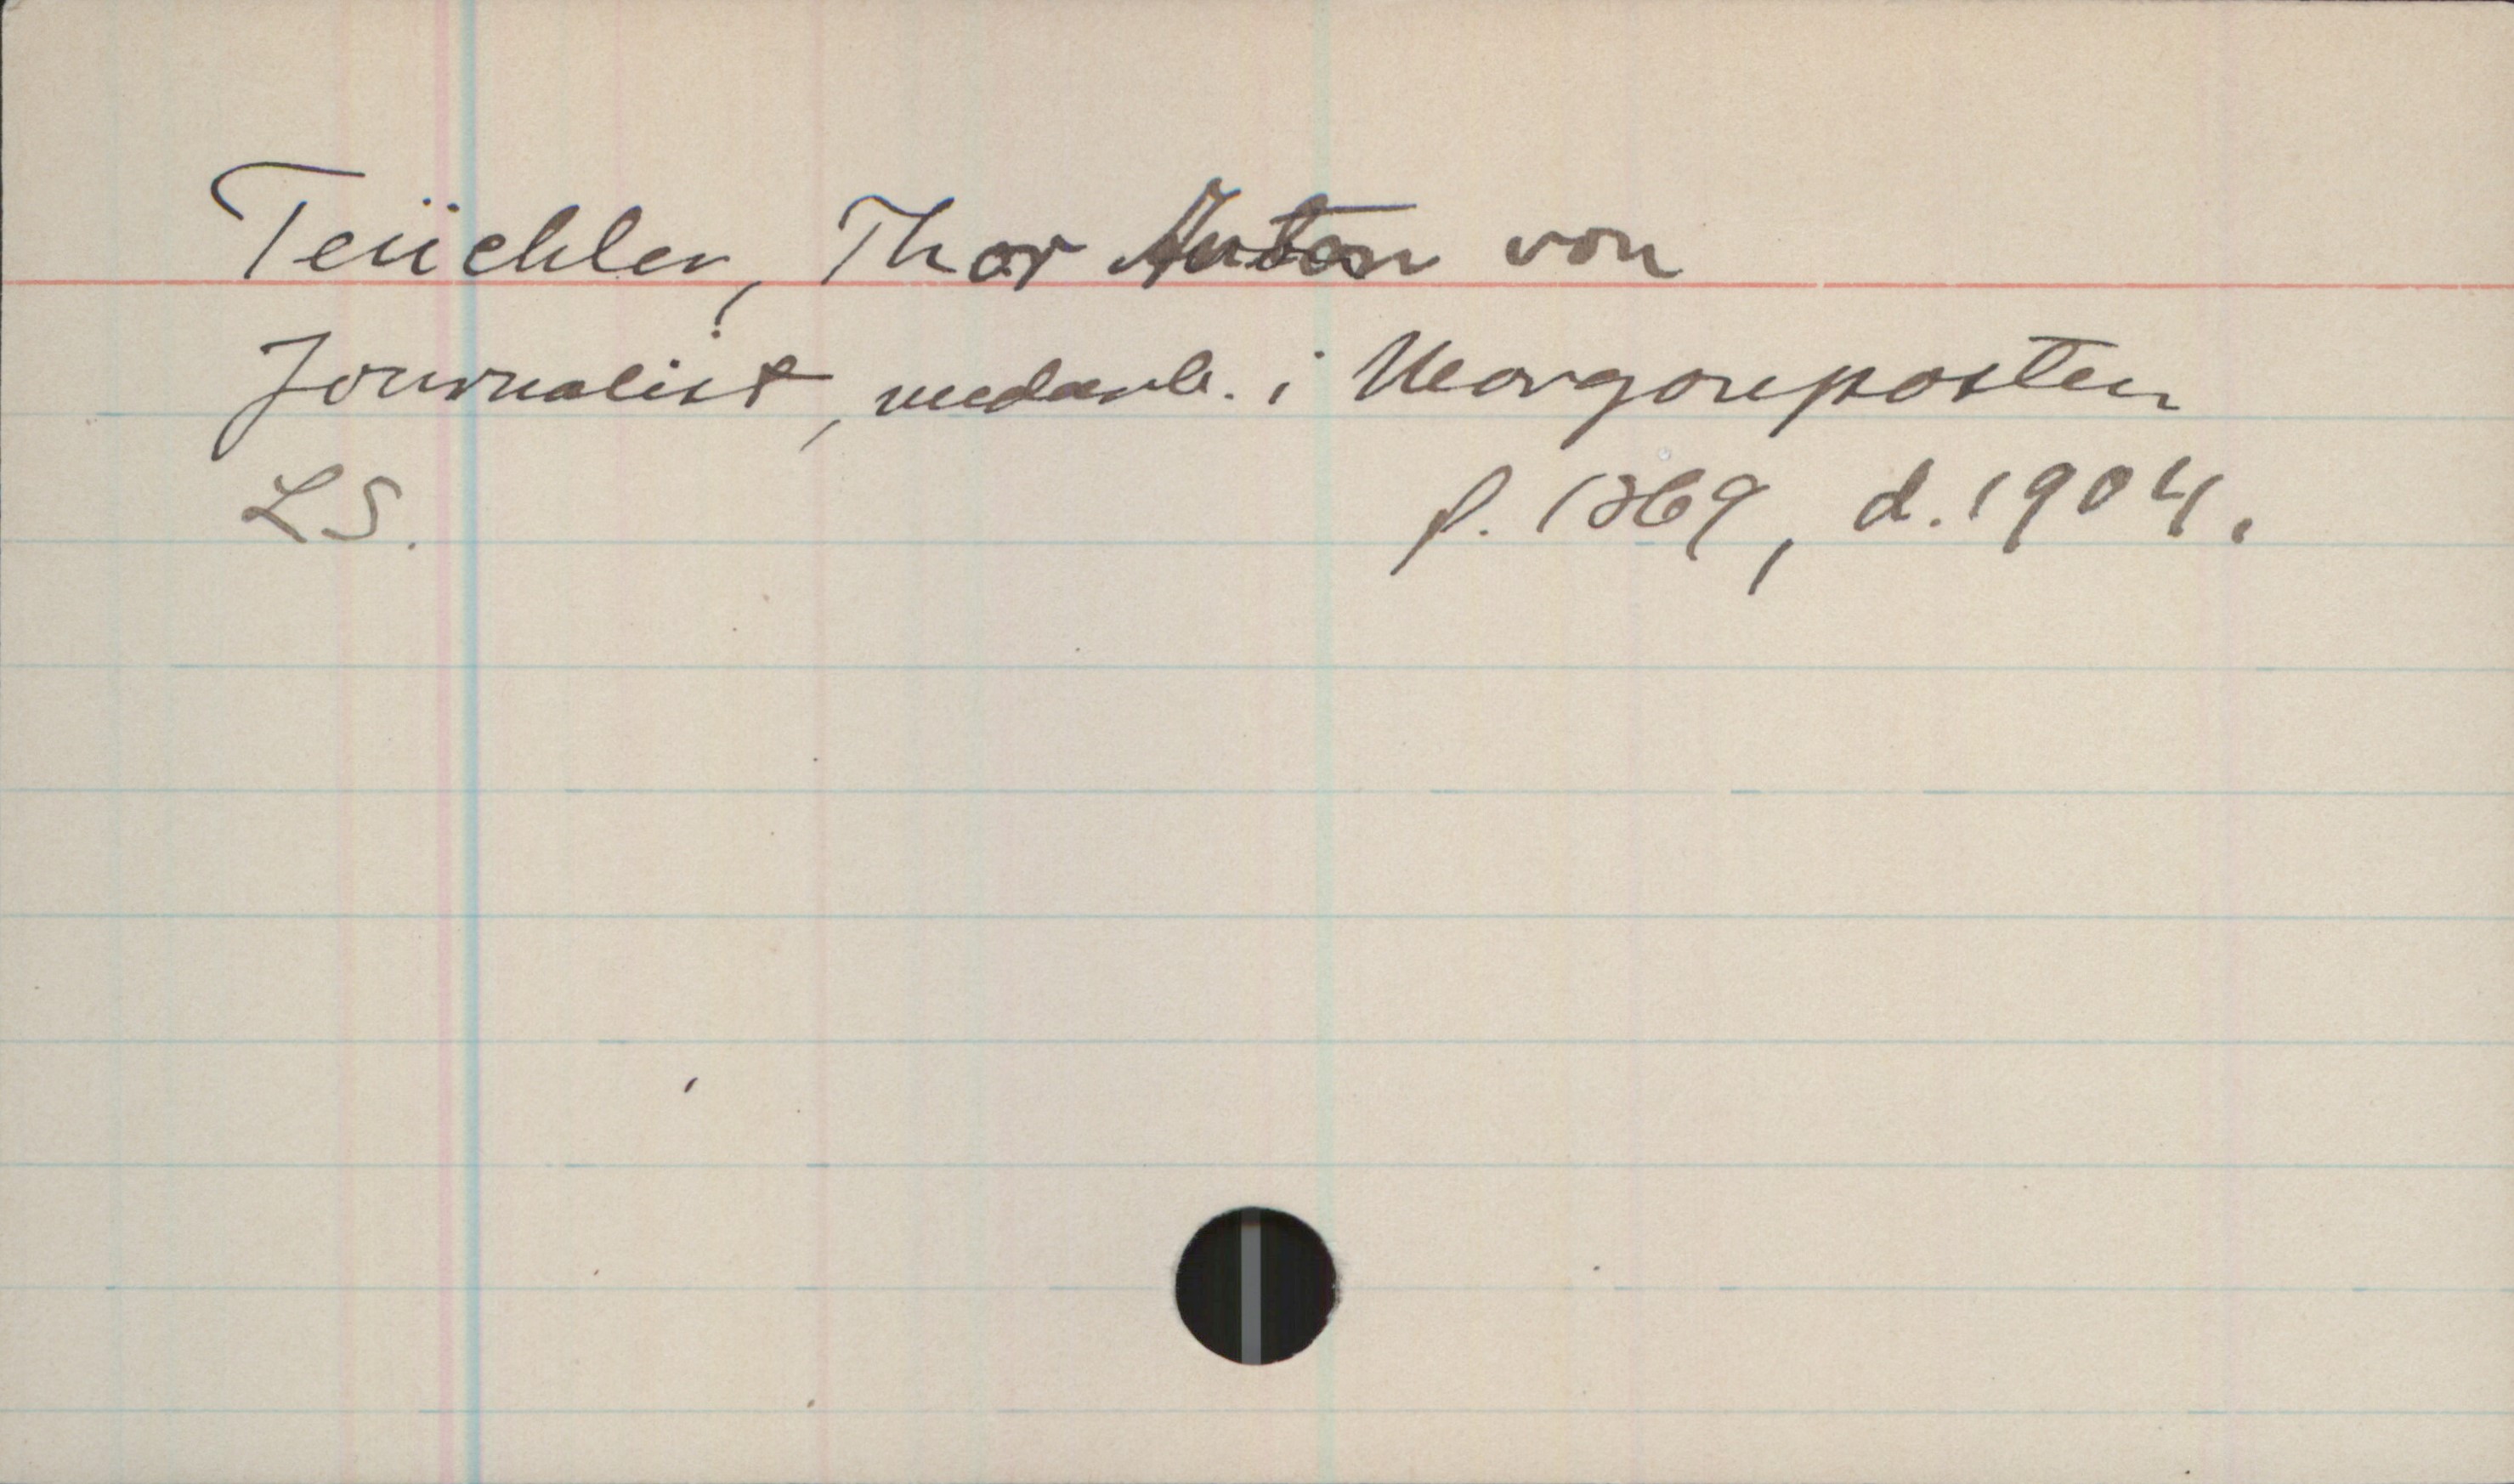 Teüchler, Thor Anton von
Journalist, medarb. i Morgonposten
LS. f. 1869, d. 1904.